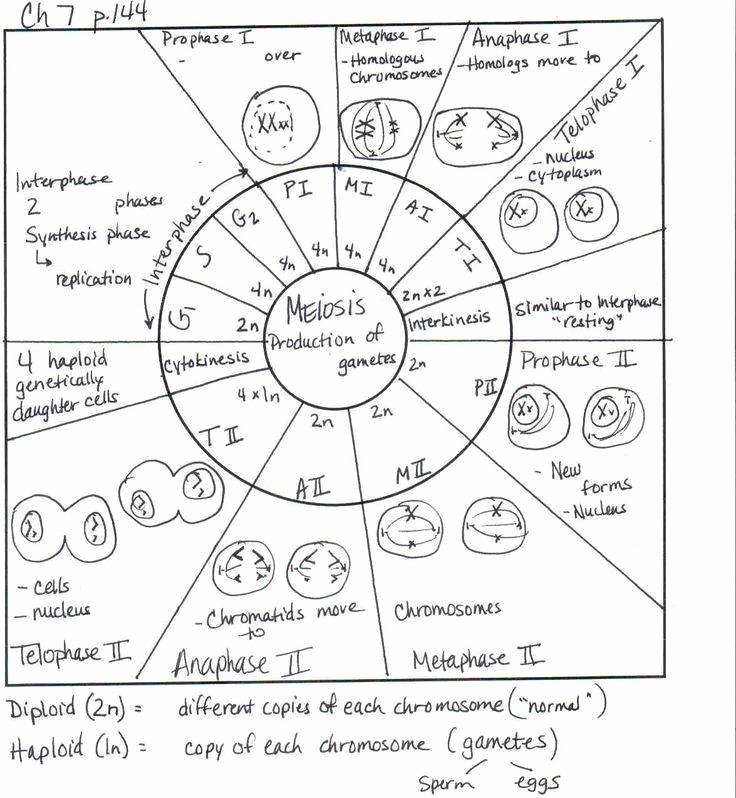 Ch 7 p.144
Prophase I
- over
Metaphase I
- Homologous
Chromosomes
Anaphase I
- Homologs move to
Telophase I
- nucleus
- cytoplasm
Interphase
2 phases
Synthesis phase
↳ replication
Interphase
G2
S
G1
PI
MI
AI
TI
4n
4n
4n
4n
4n
2n
2n x 2
Meiosis
Production of
gametes
Interkinesis
Similar to Interphase
"resting"
cytokinesis
4 haploid
genetically
daughter cells
4 x 1n
2n
2n
2n
TII
AII
MII
PII
Prophase II
- New
forms
- Nucleus
- cells
- nucleus
Telophase II
- Chromatids move
to
Anaphase II
Chromosomes
Metaphase II
Diploid (2n) = different copies of each chromosome ("normal")
Haploid (1n) = copy of each chromosome (gametes)
Sperm eggs